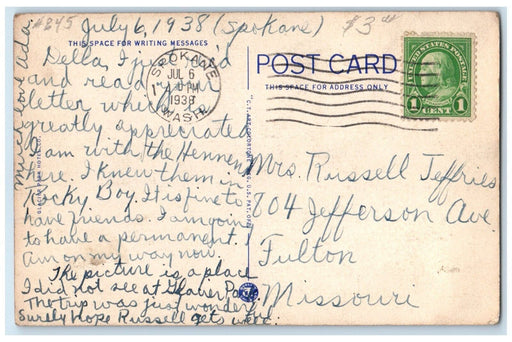 #845
July 6, 1938 (Spokane)
$3
THIS SPACE FOR WRITING MESSAGES
Della, I just rec'd
and read your
letter which I
greatly appreciated
I am with the Hennen
here. I knew them in
Rocky Boy. It is fine to
have friends. I am going
to have a permanent. I
am on my way now.
The picture is a place
I did not see at Glacier Park.
The trip was just wonderful
Surely hope Russell gets work.
Much love Ada
SPOKANE
JUL 6
1 PM
1938
WASH.
POST CARD
THIS SPACE FOR ADDRESS ONLY
UNITED STATES POSTAGE
1 CENT 1
Mrs. Russell Jeffries
804 Jefferson Ave.
Fulton
Missouri